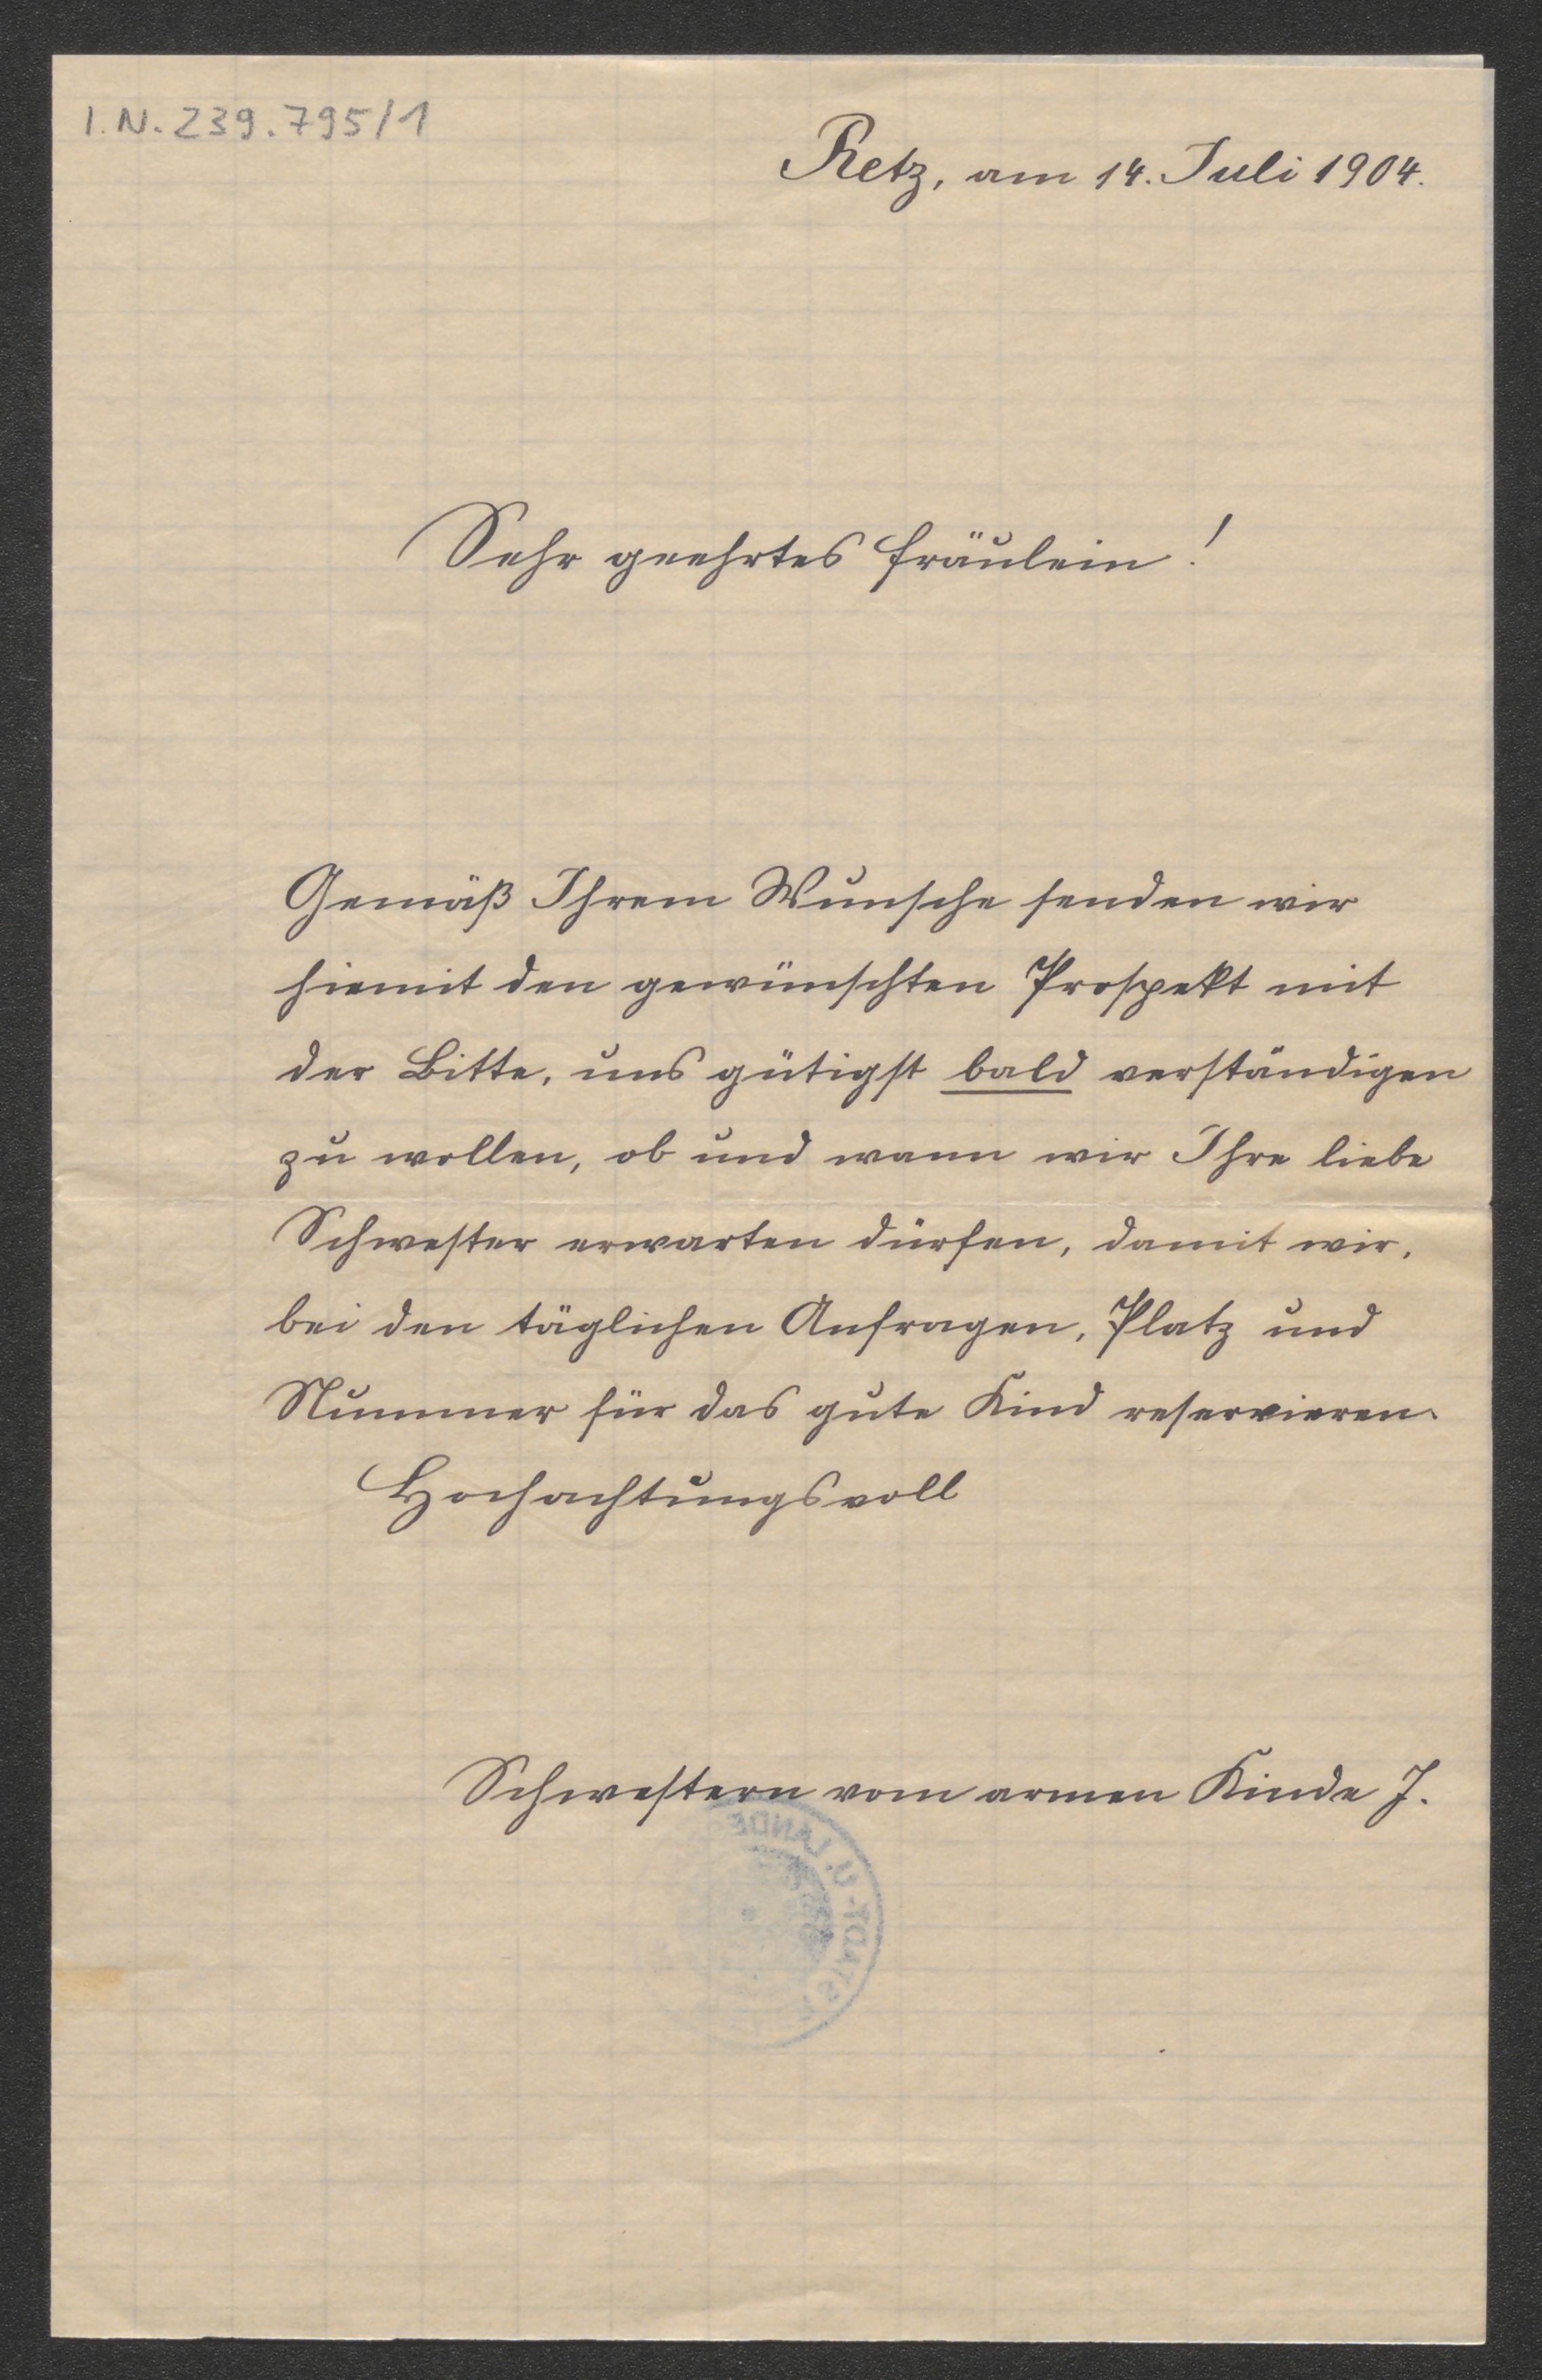 I.N. 239.795/1
Retz, am 14. Juli 1904.
Sehr geehrtes Fräulein!
Gemäß Ihrem Wunsche senden wir
hiemit den gewünschten Prospekt mit
der Bitte, uns gütigst bald verständigen
zu wollen, ob und wann wir Ihre liebe
Schwester erwarten dürfen, damit wir,
bei den täglichen Anfragen, Platz und
Nummer für das gute Kind reservieren.
Hochachtungsvoll
Schwestern vom armen Kinde J.
STADT- U. LANDE